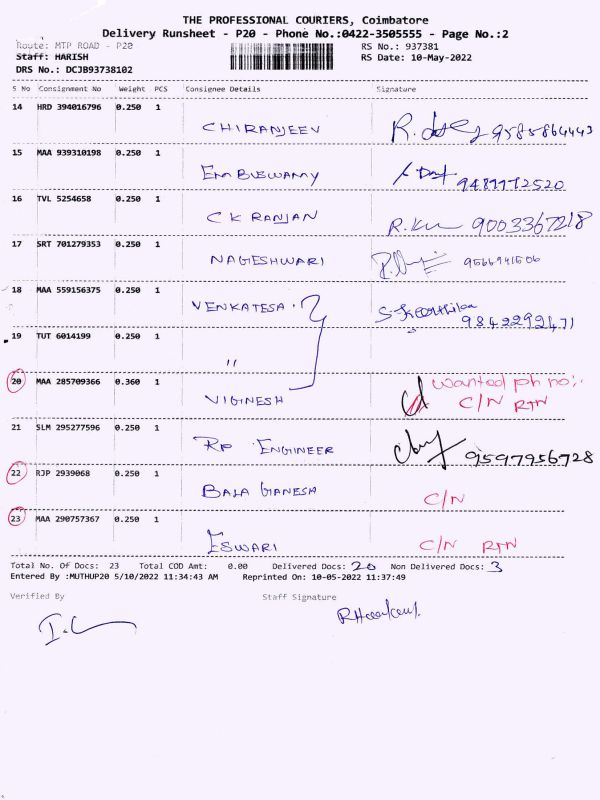 THE PROFESSIONAL COURIERS, Coimbatore
Delivery Runsheet - P20 - Phone No.:0422-3505555 - Page No.:2
Route: MTP ROAD - P20 RS No.: 937381
Staff: HARISH RS Date: 10-May-2022
DRS No.: DCJB93738102
S No Consignment No Weight PCS Consignee Details Signature
14 HRD 394016796 0.250 1 CHIRANJEEV 9585864443
15 MAA 939310198 0.250 1
16 TVL 5254658 0.250 1 CK RANJAN 9003367218
17 SRT 701279353 0.250 1 NAGESHWARI 9566941506
18 MAA 559156375 0.250 1 VENKATESA. 9842292471
19 TUT 6014199 0.250 1 "
20 MAA 285709366 0.360 1 VIGINESH Wanted ph no:-
C/N RTN
21 SLM 295277596 0.250 1 RP ENGINEER 9597956728
22 RJP 2939068 0.250 1 BALA GANESH C/N
23 MAA 290757367 0.250 1 ESWARI C/N RTN
Total No. Of Docs: 23 Total COD Amt: 0.00 Delivered Docs: 20 Non Delivered Docs: 3
Entered By :MUTHUP20 5/10/2022 11:34:43 AM Reprinted On: 10-05-2022 11:37:49
Verified By Staff Signature